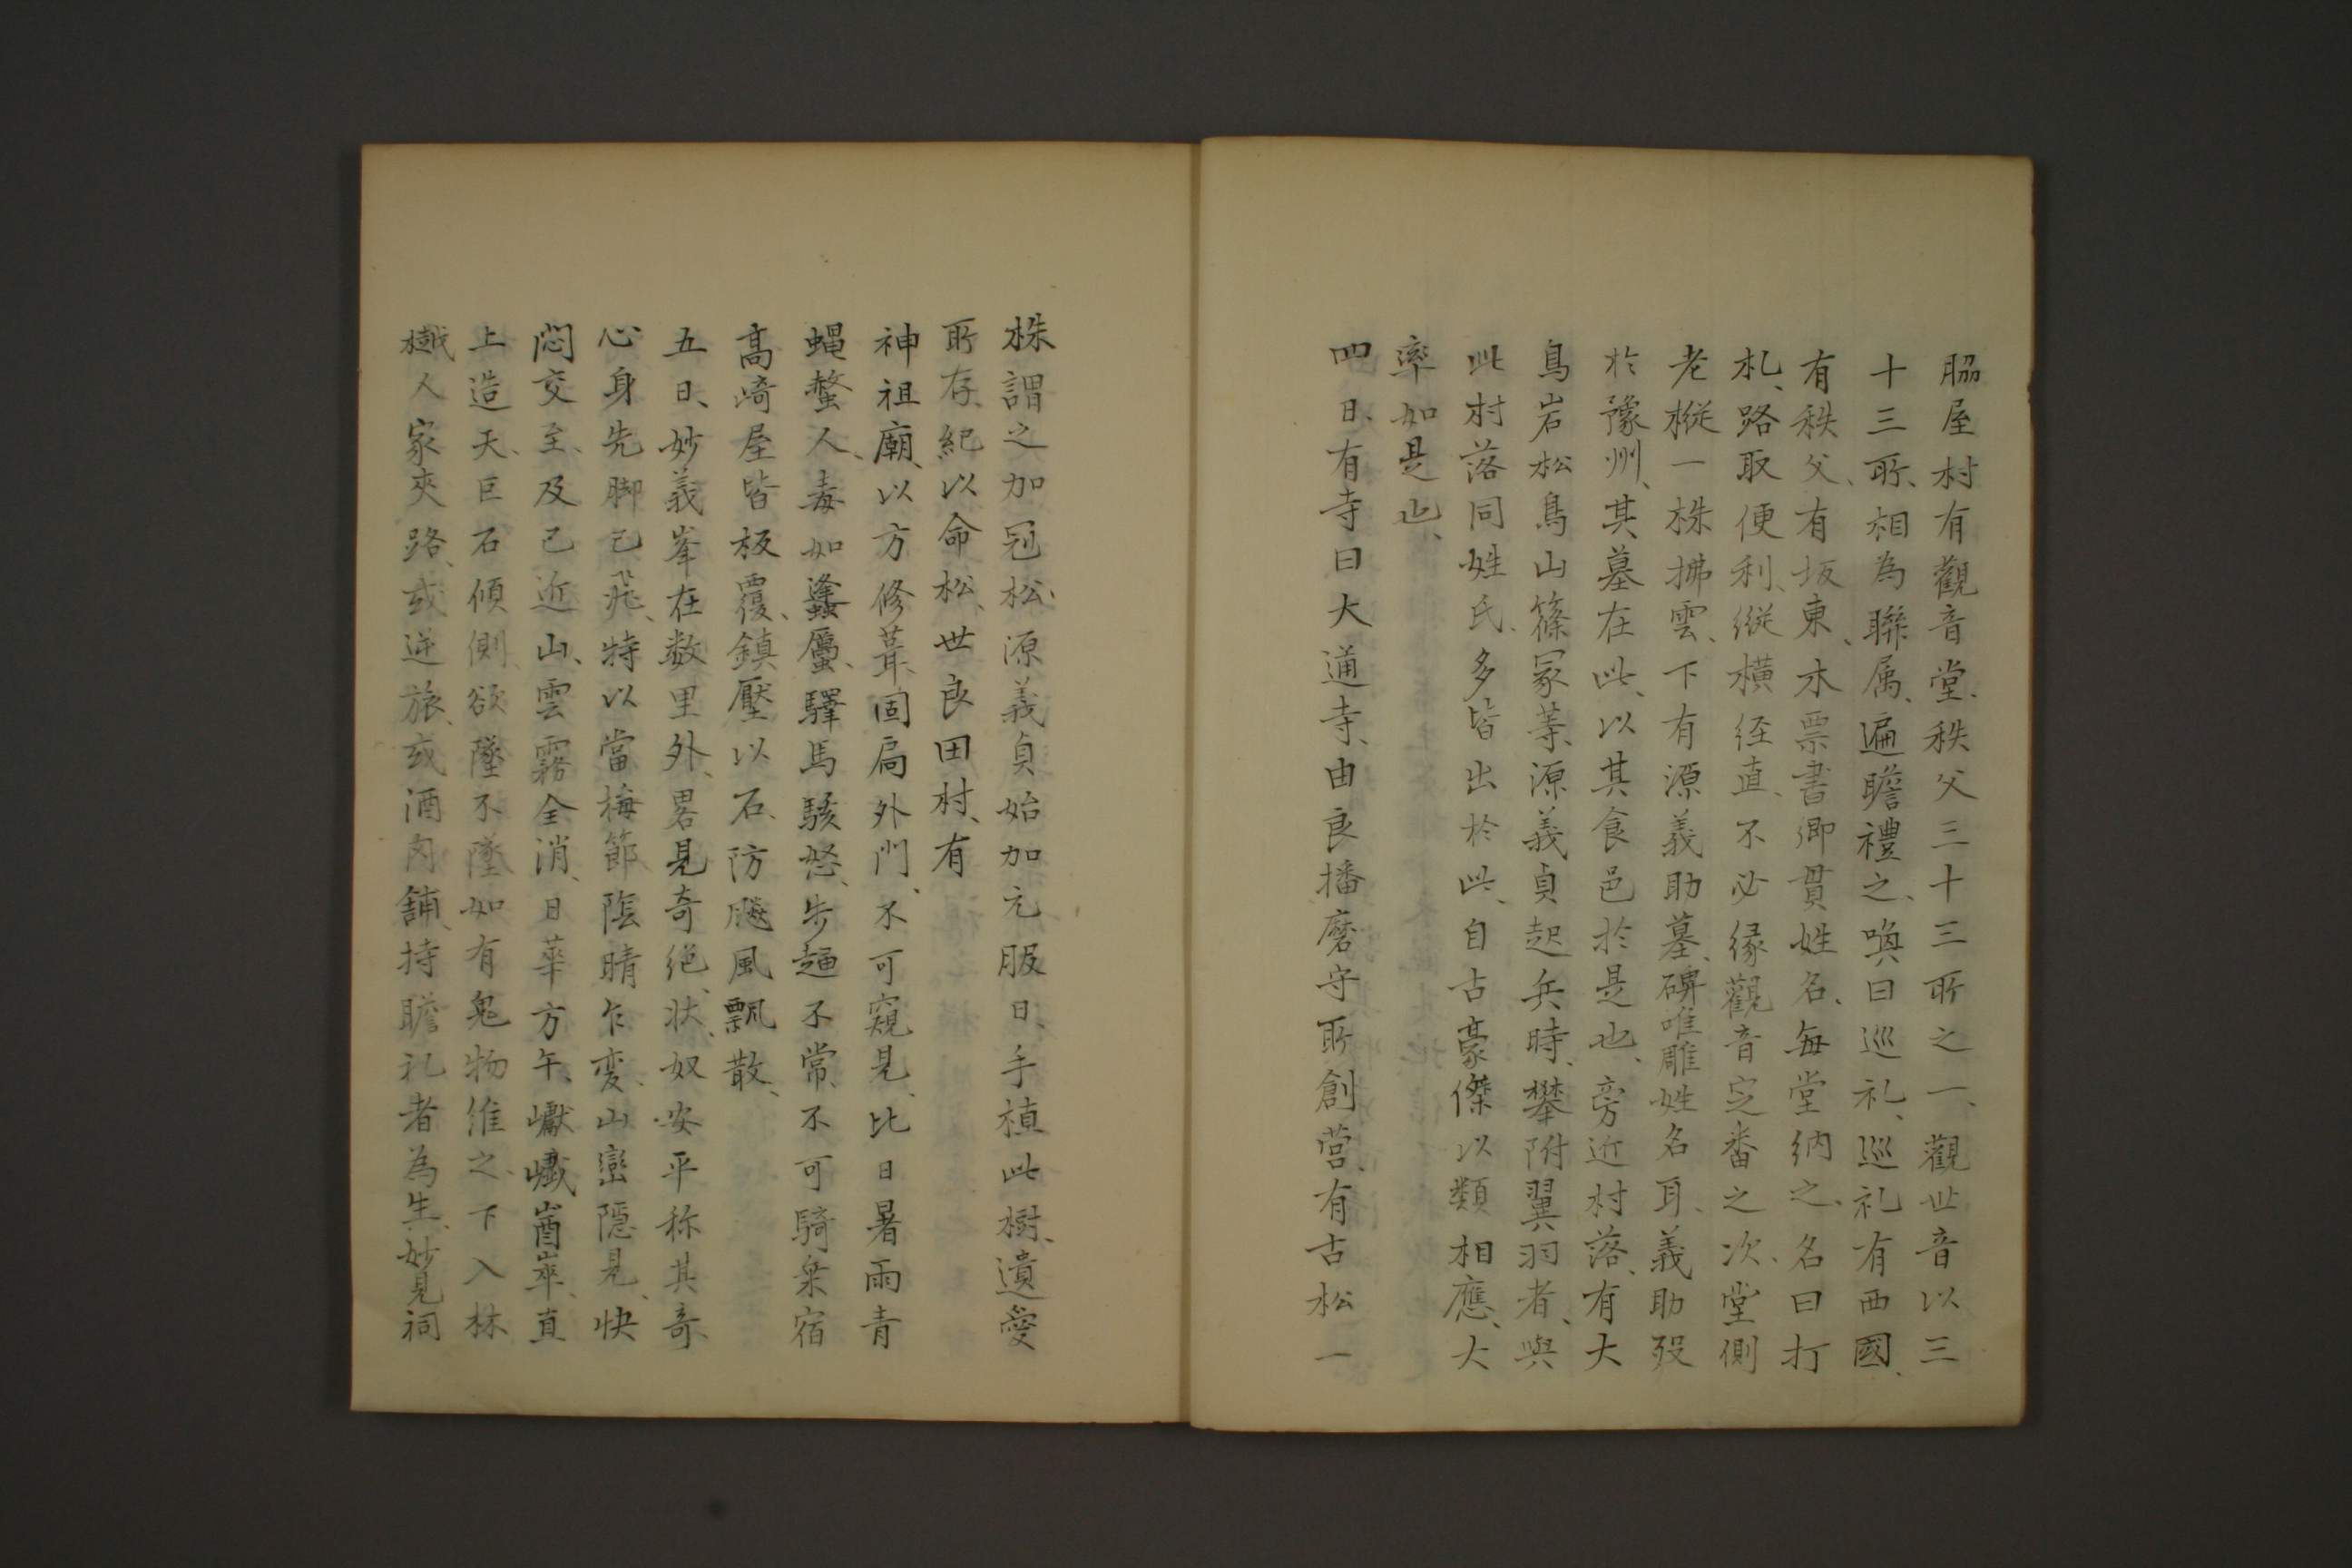 脇屋村有觀音堂、秩父三十三所之一、觀世音以三
十三所、相為聯属、遍瞻禮之、喚曰巡礼、巡礼有西國、
有秩父、有坂東、木票書郷貫姓名、每堂納之、名曰打
札、路取便利、縦横径直、不必縁觀音定番之次、堂側
老樅一株拂雲、下有源義助墓、碑唯雕姓名耳、義助歿
於豫州、其墓在此、以其食邑於是也、旁近村落、有大
鳥岩松鳥山篠冢等、源義貞起兵時、攀附翼羽者、與
此村落同姓氏、多皆出於此、自古豪傑以類相應、大
率如是也、
四日、有寺曰大通寺、由良播磨守所創営、有古松一
株謂之加冠松、源義貞始加元服日、手植此樹、遺愛
所存、紀以命松、世良田村、有
神祖廟、以方修葺、固扃外門、不可窺見、比日暑雨青
蝿螫人、毒如蠭蠆、驛馬駭怒、步趨不常、不可騎乗宿
高崎屋皆板覆、鎮壓以石、防颶風飄散、
五日、妙義峯在数里外、畧見奇絶、状、奴安平称其奇、
心身先脚已飛、特以當梅節、陰晴乍変、山巒隠見、快
悶交至、及已近山、雲霧全消、日華方午、巘巇崷崒、直
上造天、巨石傾側、欲墜不墜、如有鬼物維之、下入林
樾人家夾路、或逆旅、或酒肉舗、持瞻礼者為生、妙見祠